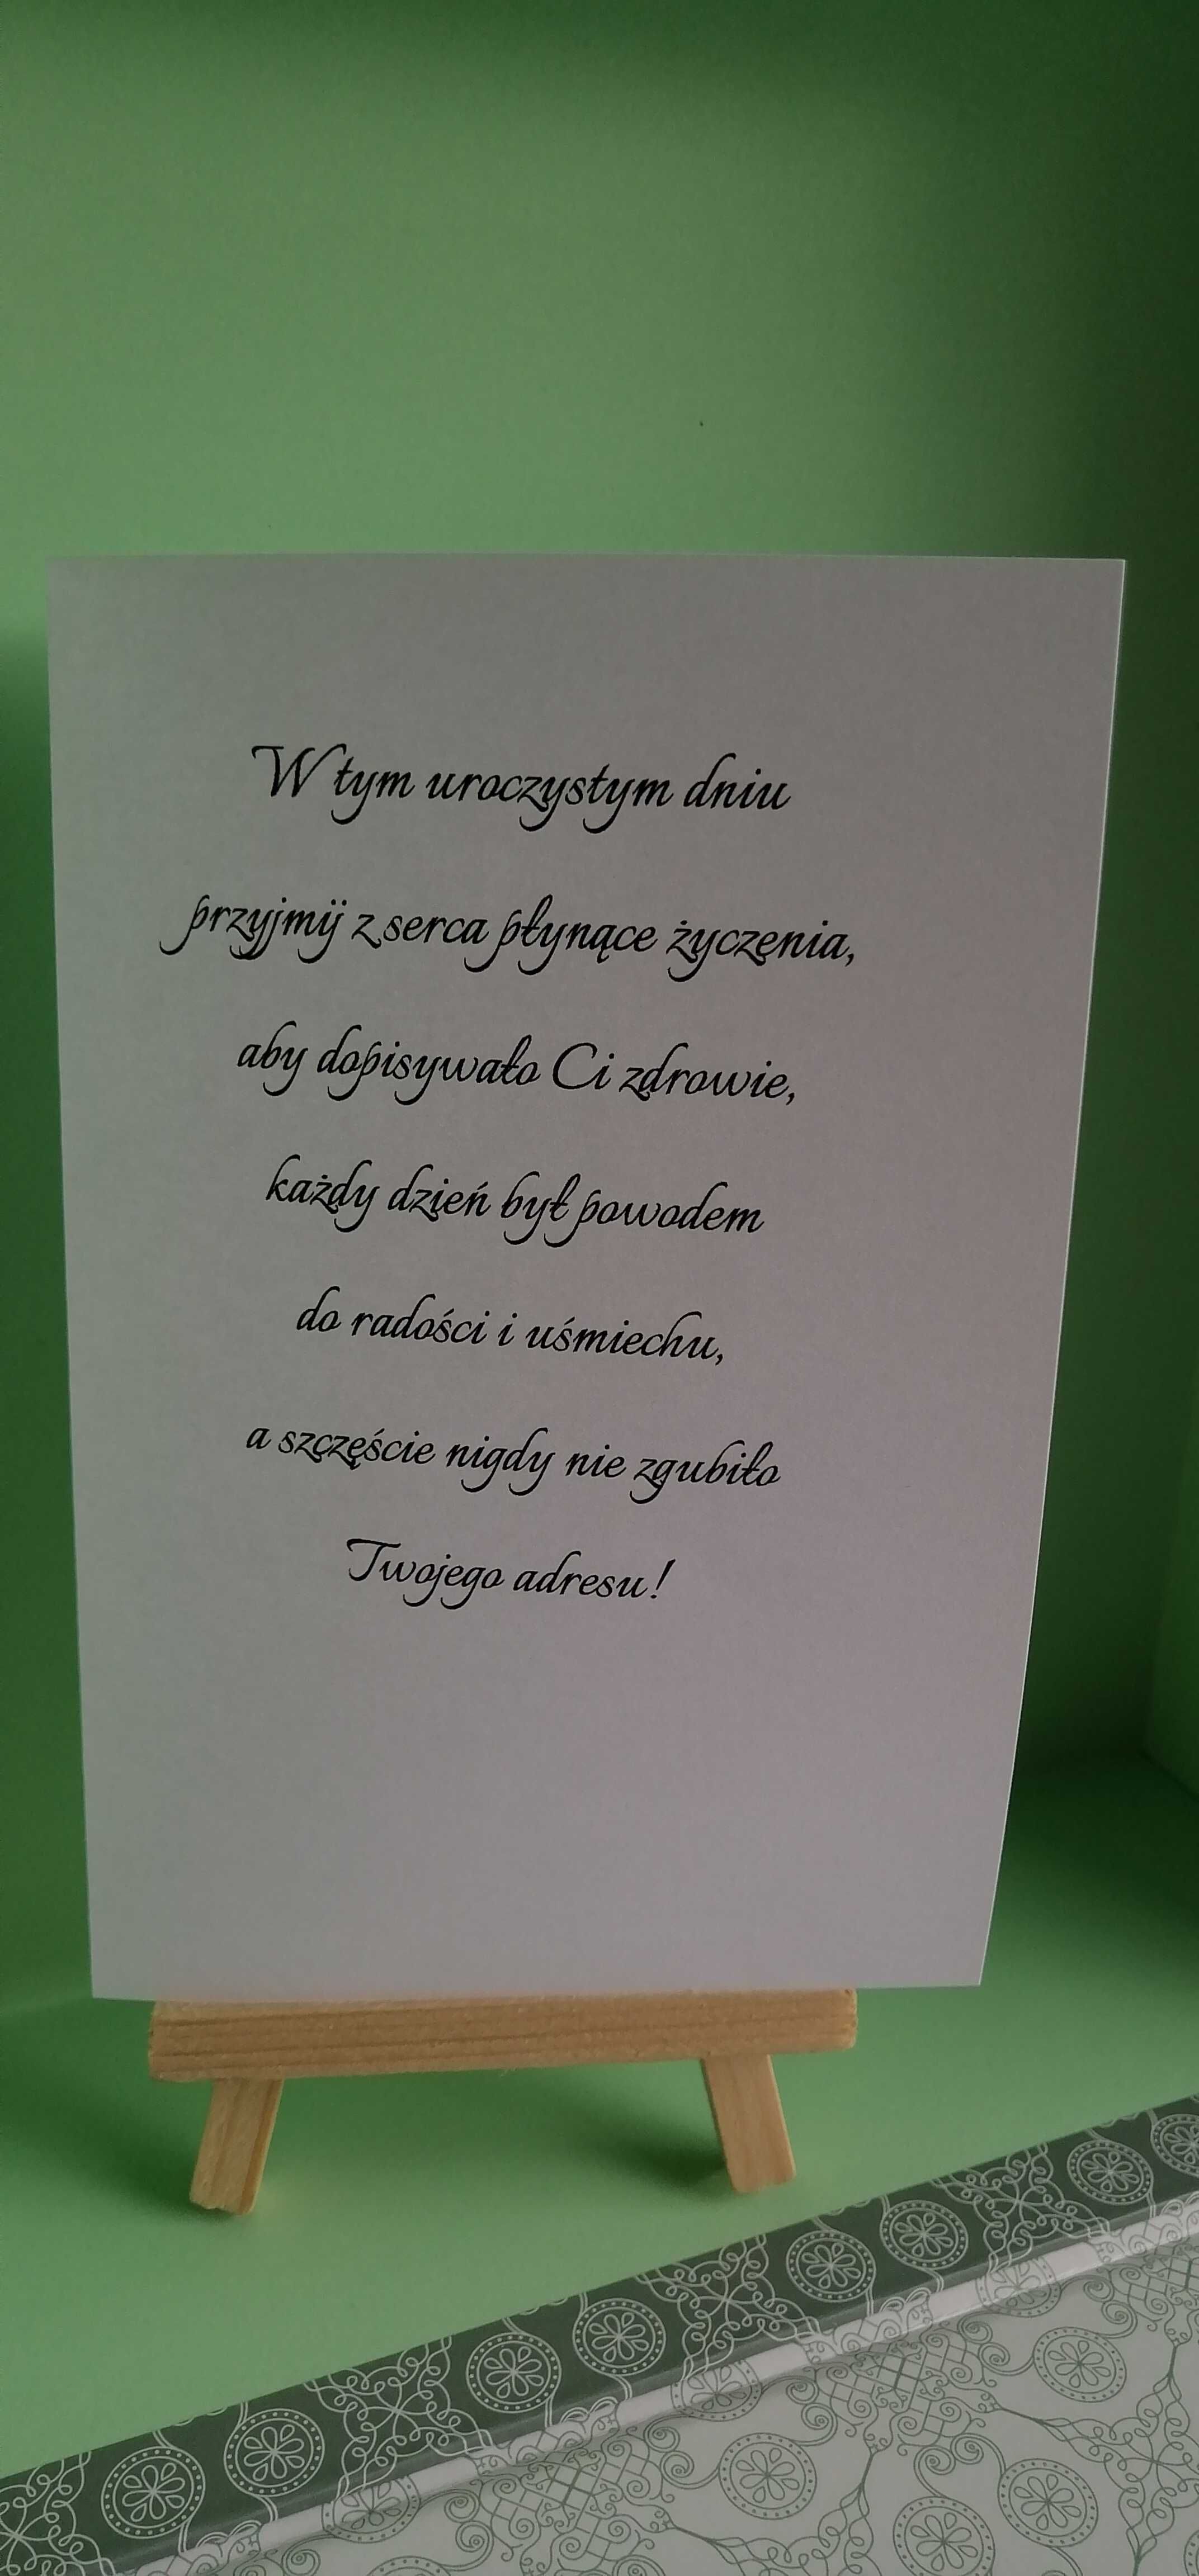 W tym uroczystym dniu
przyjmij z serca płynące życzenia,
aby dopisywało Ci zdrowie,
każdy dzień był powodem
do radości i uśmiechu,
a szczęście nigdy nie zgubiło
Twojego adresu!